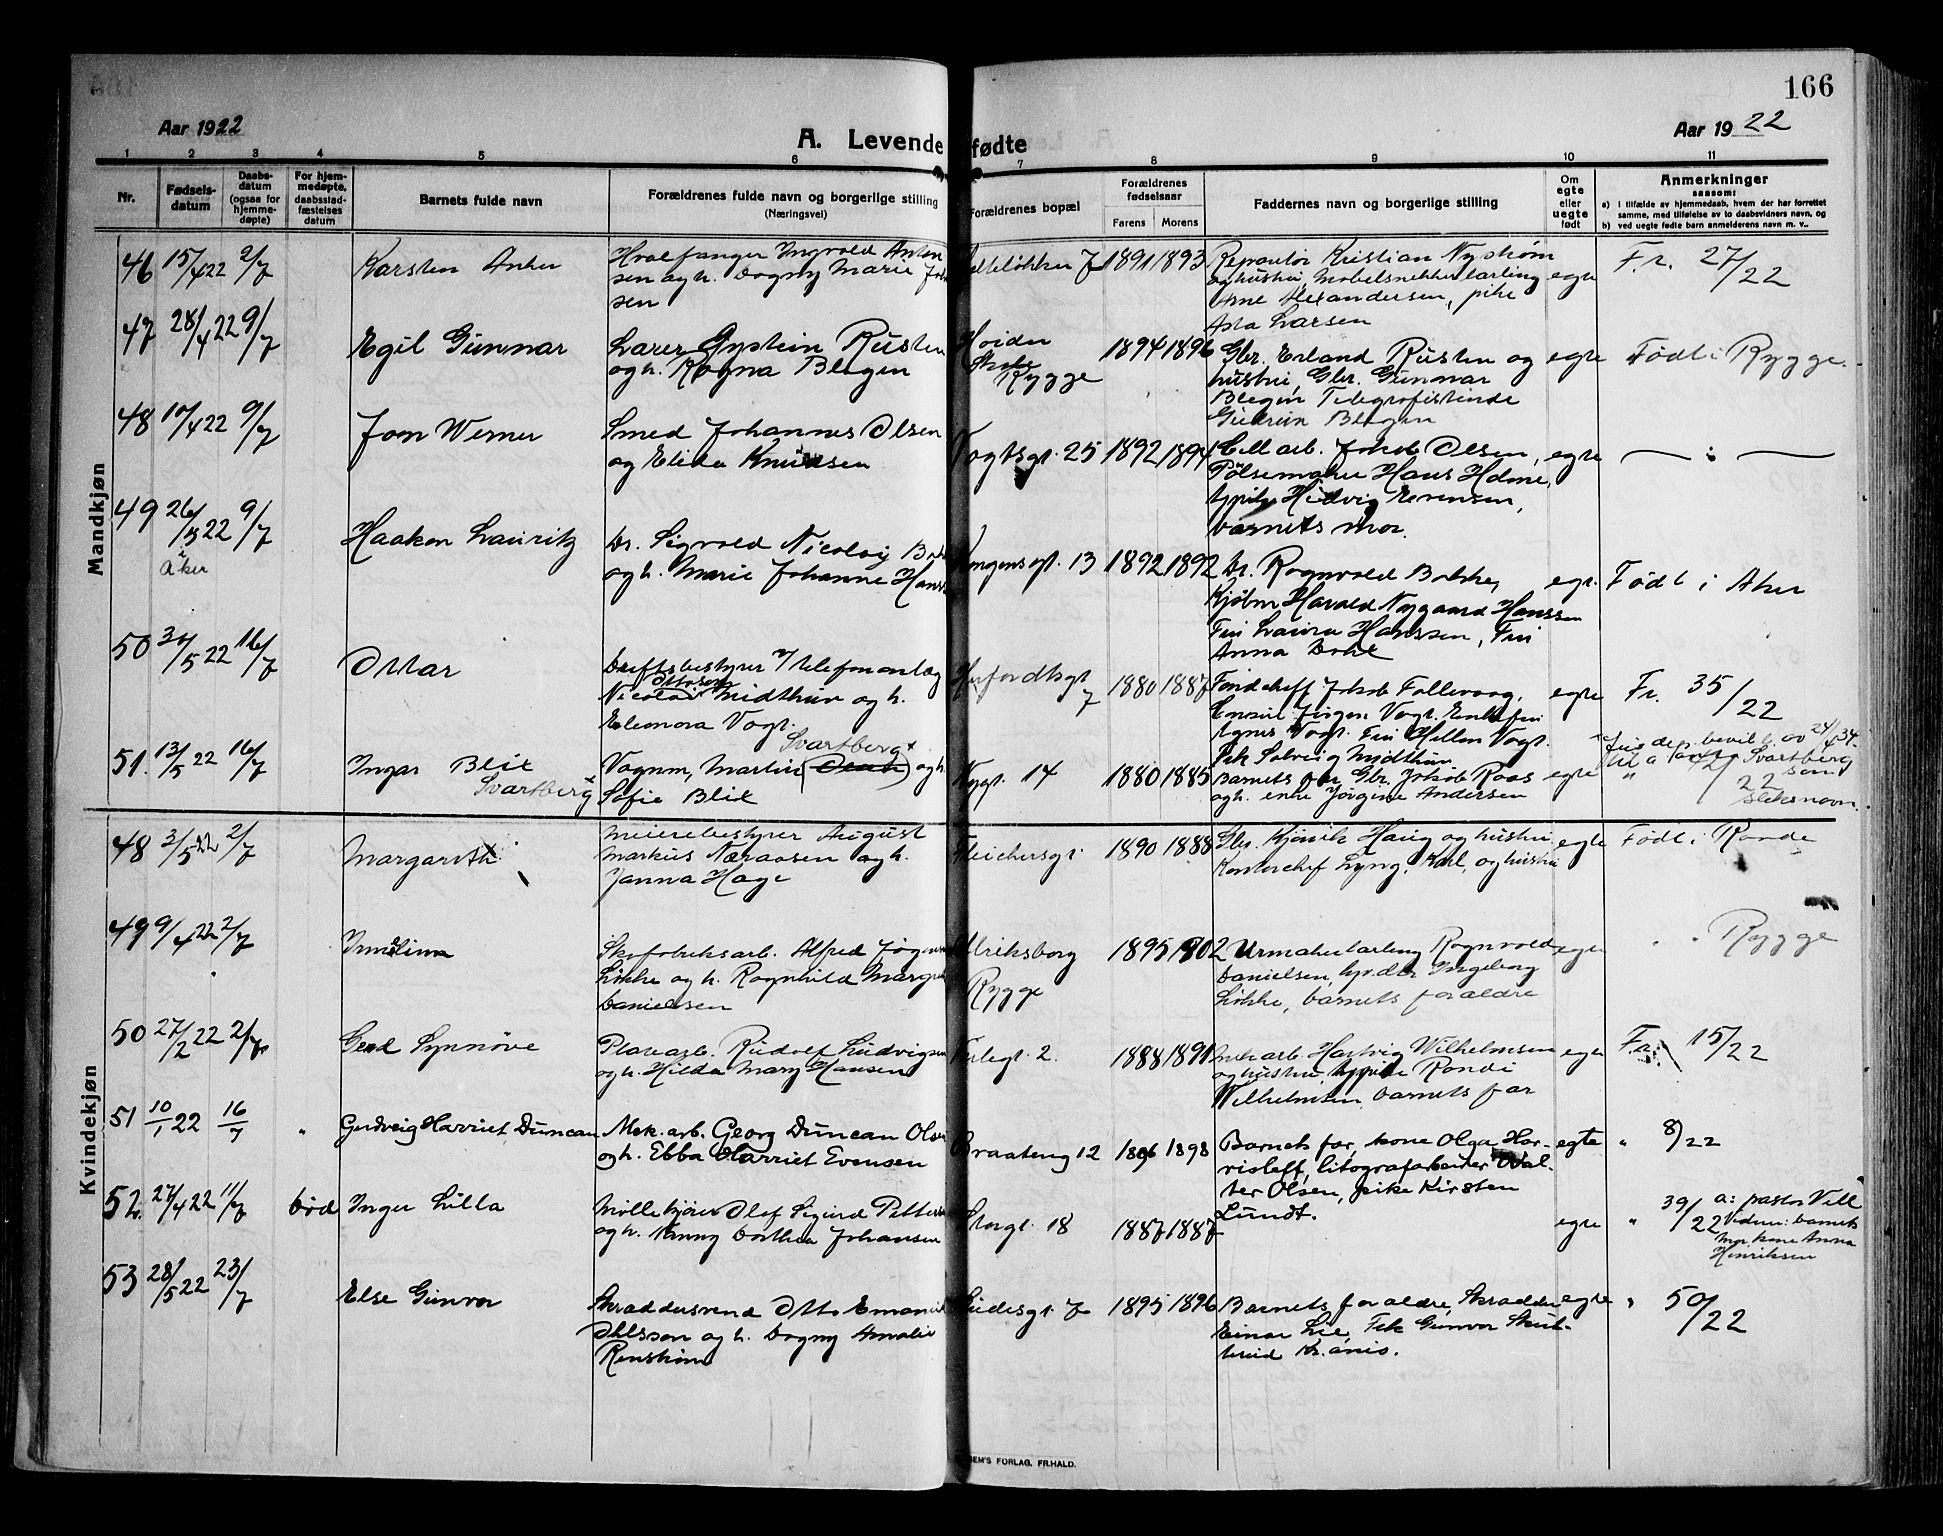 166
Aar 1922
A. Levende fødte
Aar 1922
1 2 3 4 5 6 7 8 9 10 11
Nr.
Fødsels-
datum
Daabs-
datum
(ogsaa for
hjemme-
døpte)
For hjem-
medøpte,
daabsstad-
fæstelses
datum
Barnets fulde navn
Forældrenes fulde navn og borgerlige stilling
(Næringsvei)
Forældrenes bopæl
Forældrenes
fødselsaar
Farens Morens
Faddernes navn og borgerlige stilling
Om
egte
eller
uegte
født
Anmerkninger
saasom:
a) I tilfælde av hjemmedaab, hvem der har forrettet
samme, med tilføielse av to daabsvidners navn, og
b) ved uegte fødte barn anmelderens navn m. v..
Mandkjøn
46 15/4 22 2/7 Karsten Anker
Hvalfanger Ingvald Anton
sen og h. Dagny Marie Joh
sen
1891 1893
Reparatør Kristian Nystrøm
og hustru, møbelsnekkerlærling
Arne Alexandersen, pike
Asta Larsen
egte
Fr. 27/22
47 28/4 22 9/7 Egil Gunnar
Lærer Øystein Rusten
og h. Ragna Blegen
Rygge
1894 1896
Gbr. Erland Rusten og
hustru, Gbr. Gunnar
Blegen Telegrafistinde
Gudrun Blegen
egte
Født i Rygge.
48 10/4 22 9/7 Jon Werner
Smed Johannes Olsen
og Elida Knudsen
Vogtsgt. 25
1892 1894
Cell arb. Jakob Olsen,
Pølsemaker Hans Holme,
Hedvig Evensen,
barnets mor.
egte
— " —
49 26/5 22 9/7
i
Aker
Haakon Lauritz
Dr. Sigvald Nicolay
og h. Marie Johanne Hans
Kongensgt. 13
1892 1892
Dr. Ragnvald Bakke,
Kjøbm Harald Nygaard Hanssen
Fru Laura Hanssen, Fru
Anna
egt.
Født i Aker
50 22 16/7 Ottar
Driftsbestyrer v/ telefonanlæg
Ottesen
Nicolai Midthun og h.
Eleonora Vogt.
Herfordtsgt
7
1880 1887
Jakob
Konsul Jørgen Vogt.
Agnes Vogt. Fru Hellen Vogt.
Frk Solveig Midthun
egte
Fr. 35/22
51. 13/5 22 16/7 Ingar Blix
Svartberg x
Svartberg x
Vognm, Martin og h.
Sofie Blix
Nygt. 14
1880 1885
Barnets far Gbr. Jakob Roos
og h. enke Jørgine Andersen
egte
x Jus dep. bevill. av 24/4 34
til å anta Svartberg
som
slektsnavn.
Kvindekjøn
48 3/5 22 2/7 Margareth
Meieribestyrer August
Markus Næraasen og h.
Janna Hage
Fleichersgt.
1890 1888
Gbr. Kjønik Haug og hustru
Kontorchef Lyng, Karl, og hustru
egte
Født i
49 9/4 22 2/7
Skofabriksarb. Alfred Jørgen
Løkke og h. Ragnhild Margre
Danielsen
Ulriksborg
Rygge
1895 1902
Urmakerlærling Ragnvald
Danielsen, Ingeborg
Løkke, barnets forældre
egte
" " Rygge
50 27/2 22 2/7 Gerd Synnøve
Platearb. Rudolf Ludvigsen
og h. Hilda Mary Hansen
2.
1888 1891
Mek arb. Hartvig Wilhelmsen
og hustru, Randi
Wilhelmsen, barnets far
egte
Fr. 15/22
51 10/1 22 16/7 " Gudveig Harriet Duncan
Mek. arb. Georg Duncan Olse
og h. Ebba Harriet Evensen
Braateng 12
1896 1898
Barnets far, kone Olga Har-
risleff, litografarbeider Wal-
ter Olsen, pike Kirsten
Lundt.
egte
" 8/22
52. 27/4 22 11/7 død Inger Lilla
Møllekjører Olaf Sigurd Petters
og h. Nanny Dorthea Johansen
Storgt. 18
1887 1887
egte
" 39/22
a: pastor Vill
Vidner: barnets
mor, kone Anna
Henriksen
53 28/5 22 23/7 Else Gunvor
Skræddersvend Otto Emanuel
Ohlsson og h. Dagny Amalie
Renstrøm
7
1895 1896
Barnets forældre, Skrædder
Einar Lie, Frk Gunvor
Kr.ania.
egte
" 50/22
EM'S FORLAG, FR.HALD.